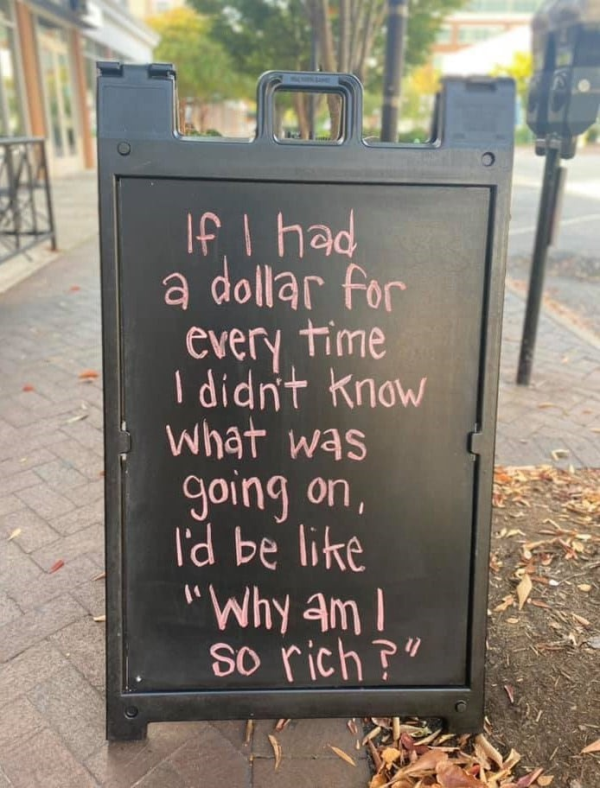 If I had
a dollar for
every time
I didn't know
what was
going on,
I'd be like
"Why am I
so rich?"